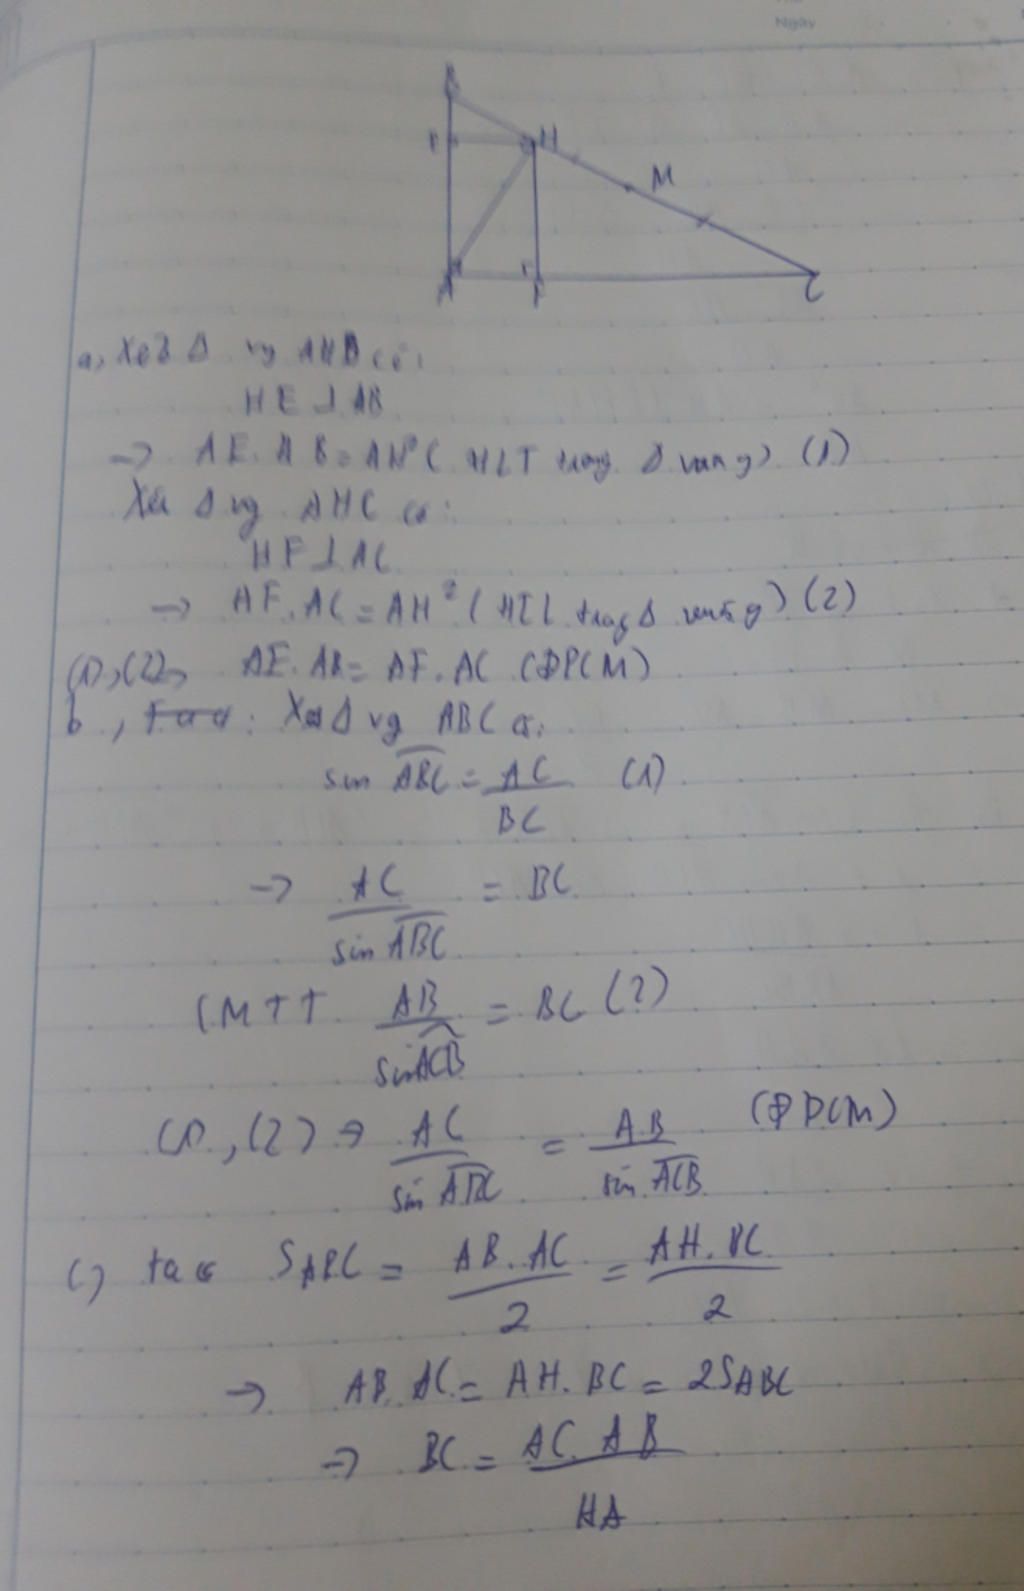 Ngày
B
E
H
M
A
F
C
a, Xét Δ vg AHB có:
HE ⊥ AB
→ AE. AB = AH² ( HLT trong Δ vuông) (1)
Xét Δ vg AHC có:
HF ⊥ AC
→ AF. AC = AH² ( HTL trong Δ vuông) (2)
(1), (2) → AE. AB = AF. AC (ĐPCM)
b, Xét Δ vg ABC có:
sin ABC = AC / BC (1)
→ AC / sin ABC = BC
CMTT AB / sin ACB = BC (2)
(1), (2) → AC / sin ABC = AB / sin ACB (ĐPCM)
c) ta có SABC = AB. AC / 2 = AH. BC / 2
→ AB. AC = AH. BC = 2SABC
→ BC = AC. AB / HA